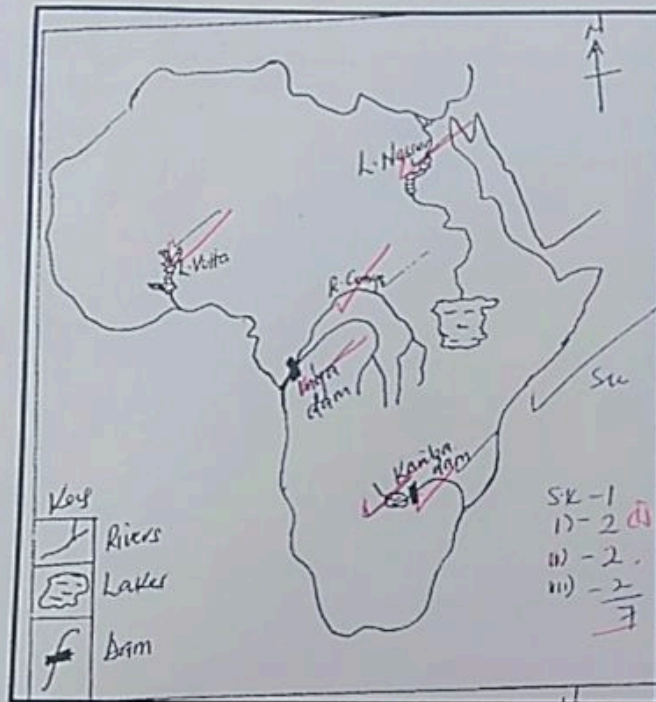 N
L. Nasser
L. Volta
R. Congo
Inga
dam
L Kariba
dam
SK
Key
Rivers
Lakes
Dam
SK - 1
i) - 2
ii) - 2
iii) - 2
7